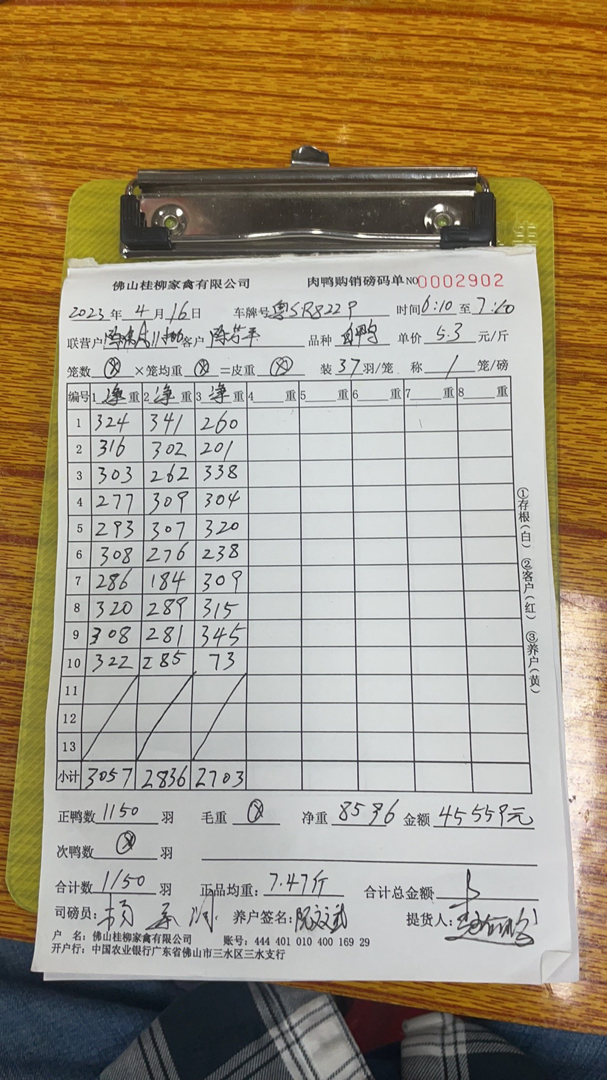 佛山桂柳家禽有限公司 肉鸭购销磅码单 NO0002902
2023年4月16日 车牌号粤SR8229 时间6:10至7:10
联营户 客户 品种 鸭 单价5.3元/斤
笼数⊗×笼均重⊗=皮重⊗ 装37羽/笼 称1笼/磅
编号 1净重 2净重 3净重 4重 5重 6重 7重 8重
1 324 341 260
2 316 302 201
3 303 262 338
4 277 309 304
5 293 307 320
6 308 276 238
7 286 184 309
8 320 289 315
9 308 281 345
10 322 285 73
11
12
13
小计 3057 2836 2703
①存根(白) ②客户(红) ③养户(黄)
正鸭数1150羽 毛重⊗ 净重8596 金额45559元
次鸭数⊗羽
合计数1150羽 正品均重:7.47斤 合计总金额
司磅员: 养户签名: 提货人:
户 名:佛山桂柳家禽有限公司 账号:444 401 010 400 169 29
开户行:中国农业银行广东省佛山市三水区三水支行